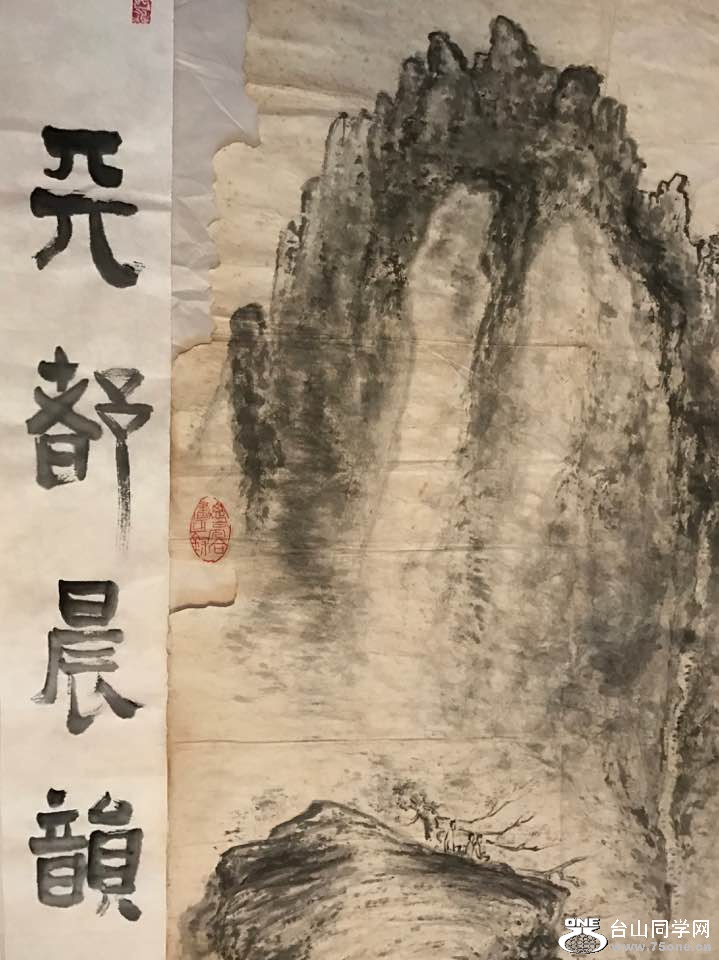 天都晨韻
ONE
台山同学网
www.75one.cn